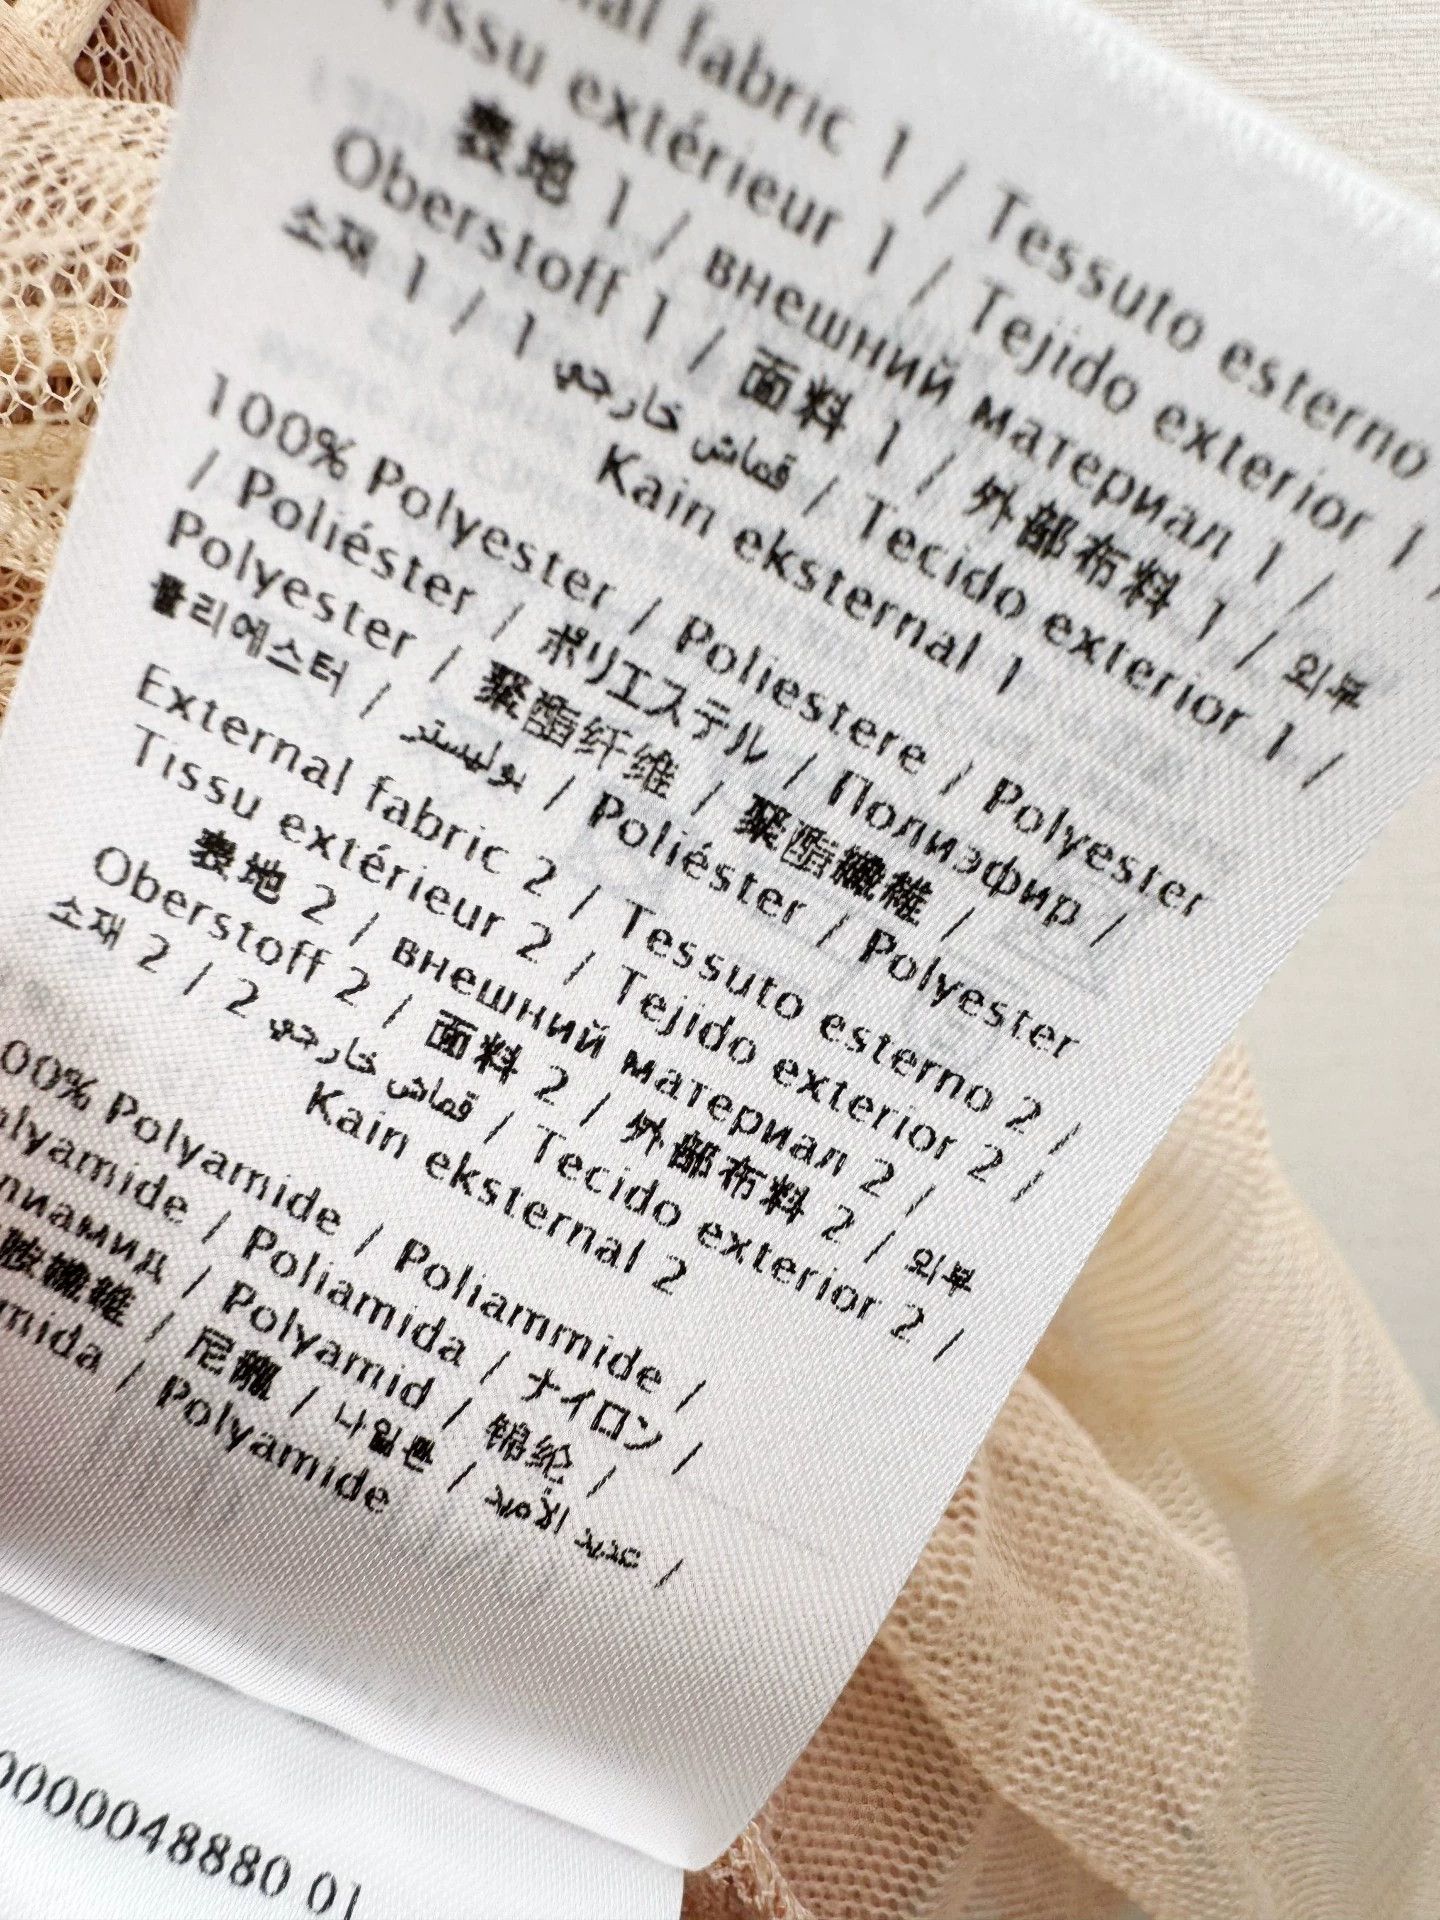 fabric 1 / Tessuto esterno
Tissu extérieur 1 / Tejido exterior 1 /
表地 1 / внешний материал 1 /
Oberstoff 1 / 面料 1 / 外部布料 1 / 외부
소재 1 / قماش خارجي 1 / Tecido exterior 1 /
Kain eksternal 1
100% Polyester / Poliestere / Polyester
/ Poliéster / ポリエステル / Полиэфир /
Polyester / 聚酯纤维 / 聚酯纖維 /
폴리에스터 / بوليستر / Poliéster / Polyester
External fabric 2 / Tessuto esterno 2 /
Tissu extérieur 2 / Tejido exterior 2 /
表地 2 / внешний материал 2 /
Oberstoff 2 / 面料 2 / 外部布料 2 / 외부
소재 2 / قماش خارجي 2 / Tecido exterior 2 /
Kain eksternal 2
00% Polyamide / Poliammide /
olyamide / Poliamida / ナイロン /
лиамид / Polyamid / 锦纶 /
胺纖維 / 尼龍 / 나일론 / عديد الأميد /
mida / Polyamide
000048880 01